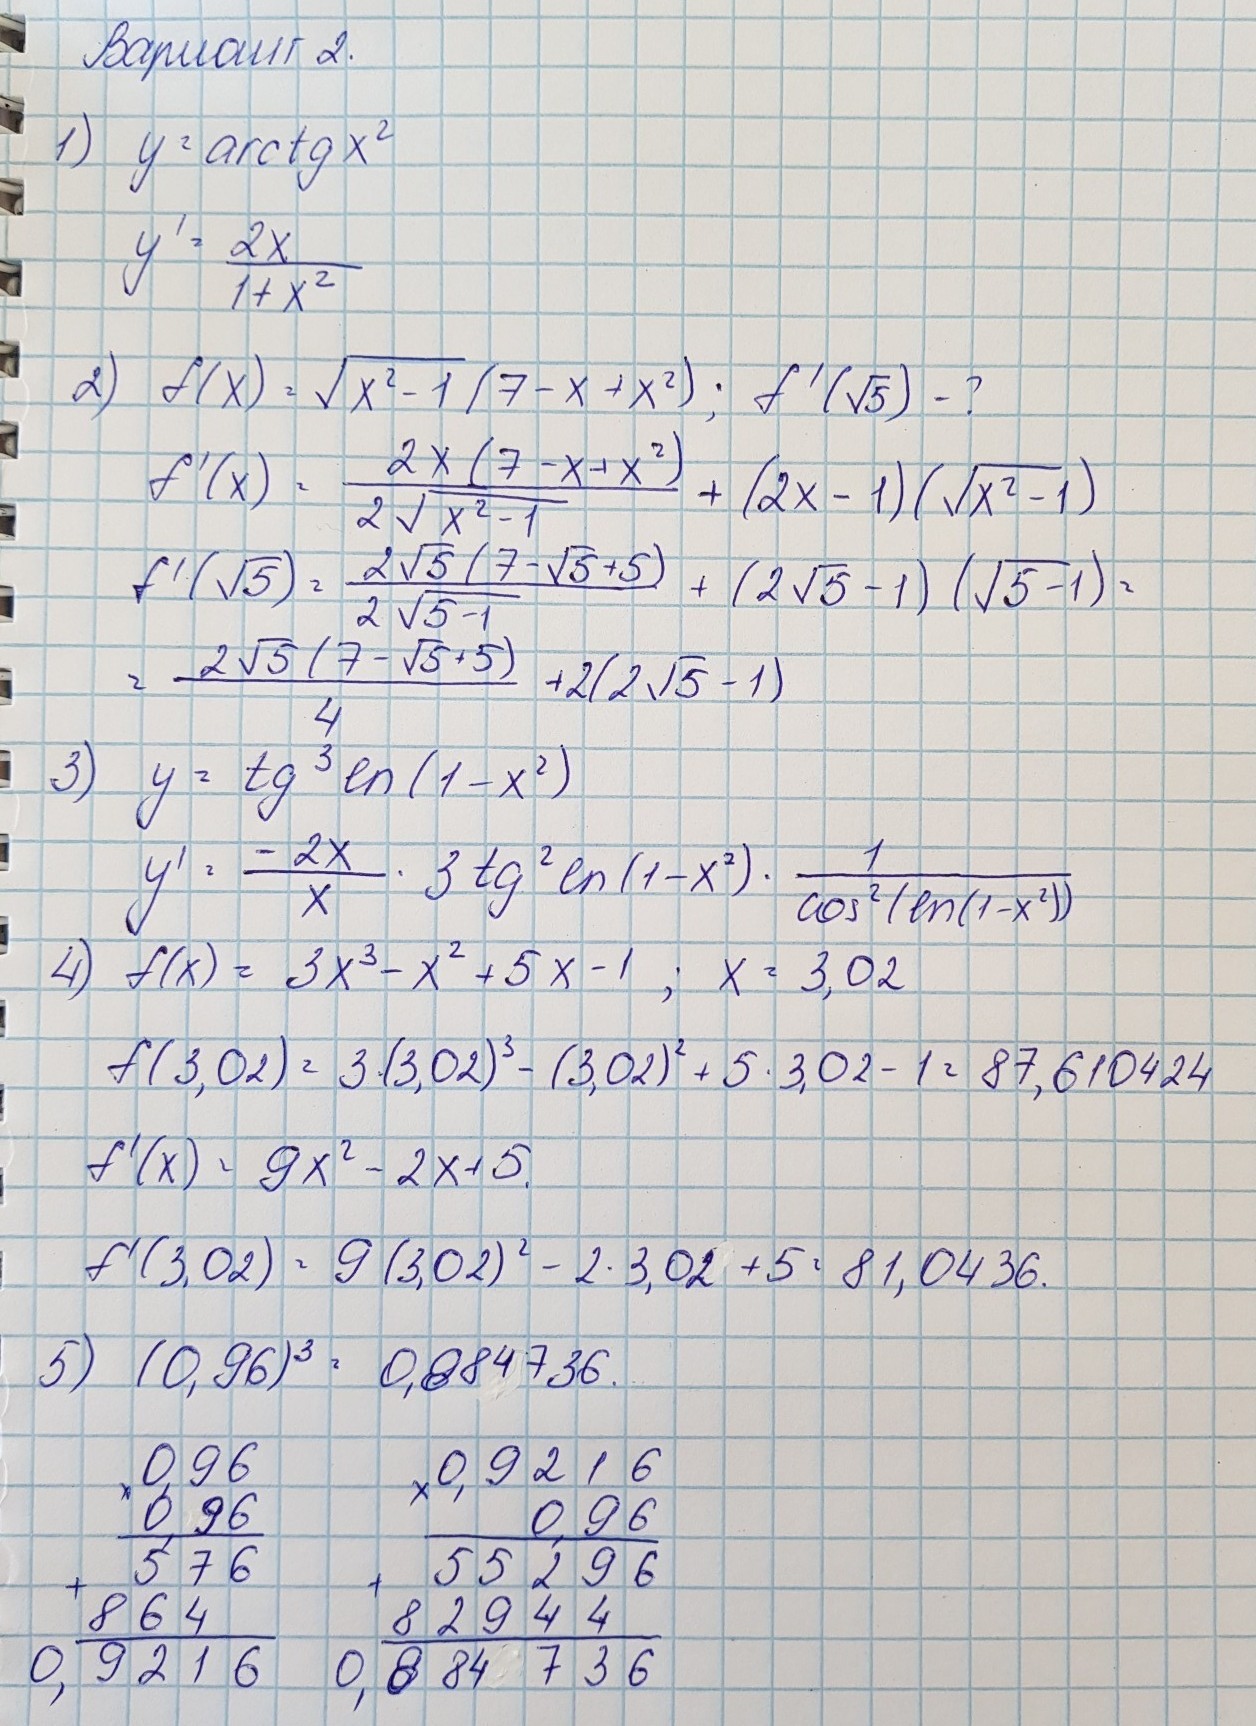 Вариант 2.
1) y = arctg x²
y' = 2x / 1+x²
2) f(x) = √(x²-1) (7-x+x²); f'(√5) - ?
f'(x) = 2x(7-x+x²) / 2√(x²-1) + (2x-1)(√(x²-1))
f'(√5) = 2√5(7-√5+5) / 2√(5-1) + (2√5-1)(√(5-1)) =
= 2√5(7-√5+5) / 4 + 2(2√5-1)
3) y = tg³ ln(1-x²)
y' = -2x / x · 3 tg² ln(1-x²) · 1 / cos²(ln(1-x²))
4) f(x) = 3x³ - x² + 5x - 1 ; x = 3,02
f(3,02) = 3·(3,02)³ - (3,02)² + 5·3,02 - 1 = 87,610424
f'(x) = 9x² - 2x + 5.
f'(3,02) = 9(3,02)² - 2·3,02 + 5 = 81,0436.
5) (0,96)³ = 0,884736.
0,96 × 0,9216
× 0,96 0,96
576 55296
+ 864 + 82944
0,9216 0,884736